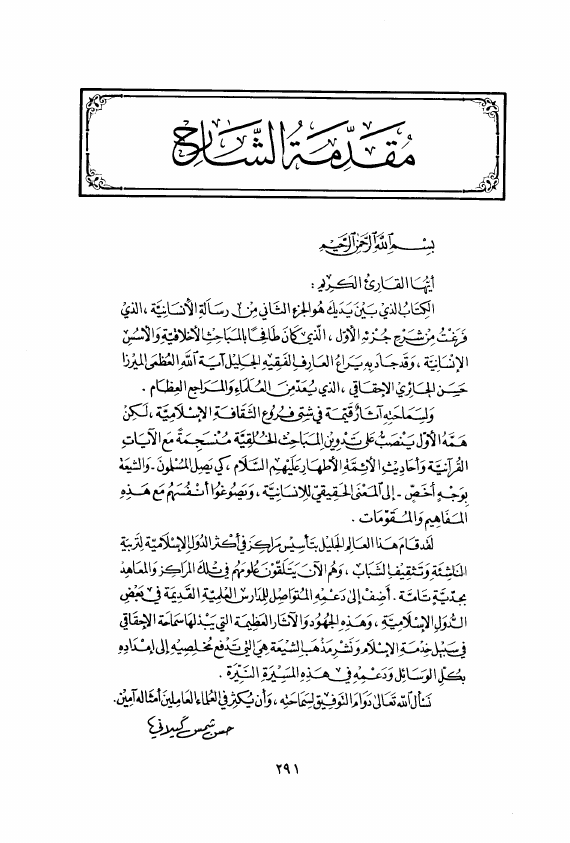 مُقَدِّمَةُ الشَّارِح
بِسْمِ اللهِ الرَّحْمٰنِ الرَّحِيمِ
أيّها القارئ الكريم :
الكِتابُ الذي بَيْنَ يَدَيْكَ هُوَ الجزء الثاني مِنْ رسَالَة الإنسَانيَّة ، الذي
فَرَغْتُ مِنْ شَرْحِ جُزئهِ الأوّل ، الّذي كَانَ طَافِحًا بالمبَاحِث الأخلاقيّة والأُسُسِ
الإنسَانيَّة ، وَقَد جَادَ به يَراعُ العارف الفَقِيه الجَليل آيَة الله العُظمَى الميرزا
حَسَن الحَائِري الإحقاقي ، الذي يُعدّ مِنَ العُلَمَاءِ والمَراجِع العِظام .
وَلِسَمَاحَتِهِ آثَارٌ قَيِّمَة في شتى فُرُوع الثَّقَافَة الإسْلَاميَّة ، لَكِنْ
هَمَّهُ الأوّل يَنصَبُّ عَلى تَدْوِينِ المبَاحِث الخُلُقِيَّةِ مُنْسَجِمَةً مَعَ الآيَاتِ
القُرآنيّة وَأحَادِيثِ الأئِمَّةِ الأطهَارِ عَلَيْهِم السَّلَام ، كَي يَصِل المُسْلِمُونَ - والشّيعَة
بِوَجْهٍ أخَصّ - إلى المَعْنَى الحَقِيقيِّ للإنسَانيَّة ، وَيَصُوغُوا أنْفُسَهُم مَعَ هَذِهِ
المَفَاهِيمِ وَالمُقَوّمَات .
لَقَد قَامَ هَذا العالِم الجَليل بتَأسيس مَرَاكِزَ في أكْثر الدُّوَل الإسْلاميّة لِتَربِيَةِ
النَّاشِئَةِ وَتَثقِيفِ الشَّبَاب ، وَهُم الآنَ يَتَلَقَّوْنَ عُلُومَهُم في تِلْكَ المَراكِز وَالمَعَاهِدِ
بجدِّيَّةٍ تَامَّة . أضِفْ إلى دَعْمِهِ المُتَواصِل للمَدَارس العِلْميَّة القَدِيمَة في بَعْضِ
الدُّوَلِ الإسْلاميَّة ، وَهَذِهِ الجُهُود وَالآثَار العَظِيمَة التي يَبْذلها سَمَاحَة الإحقَاقي
في سَبيلِ خِدْمَةِ الإسْلَام وَنَشْرِ مَذْهَبِ الشّيعَةِ هِيَ التي تَدفَع مُخلِصِيهِ إلى إمْدَادِهِ
بِكلِّ الوسَائِلِ وَدَعْمِهِ في هَذِهِ المَسِيرَة النَّيِّرَة .
نَسْأَل الله تَعَالى دَوَامَ التَّوفِيقِ لِسَمَاحَتِهِ ، وَأن يُكثِرَ في العُلَمَاءِ العَامِلِينَ أمثَاله آمِين.
حسن شمس گيلاني
٢٩١